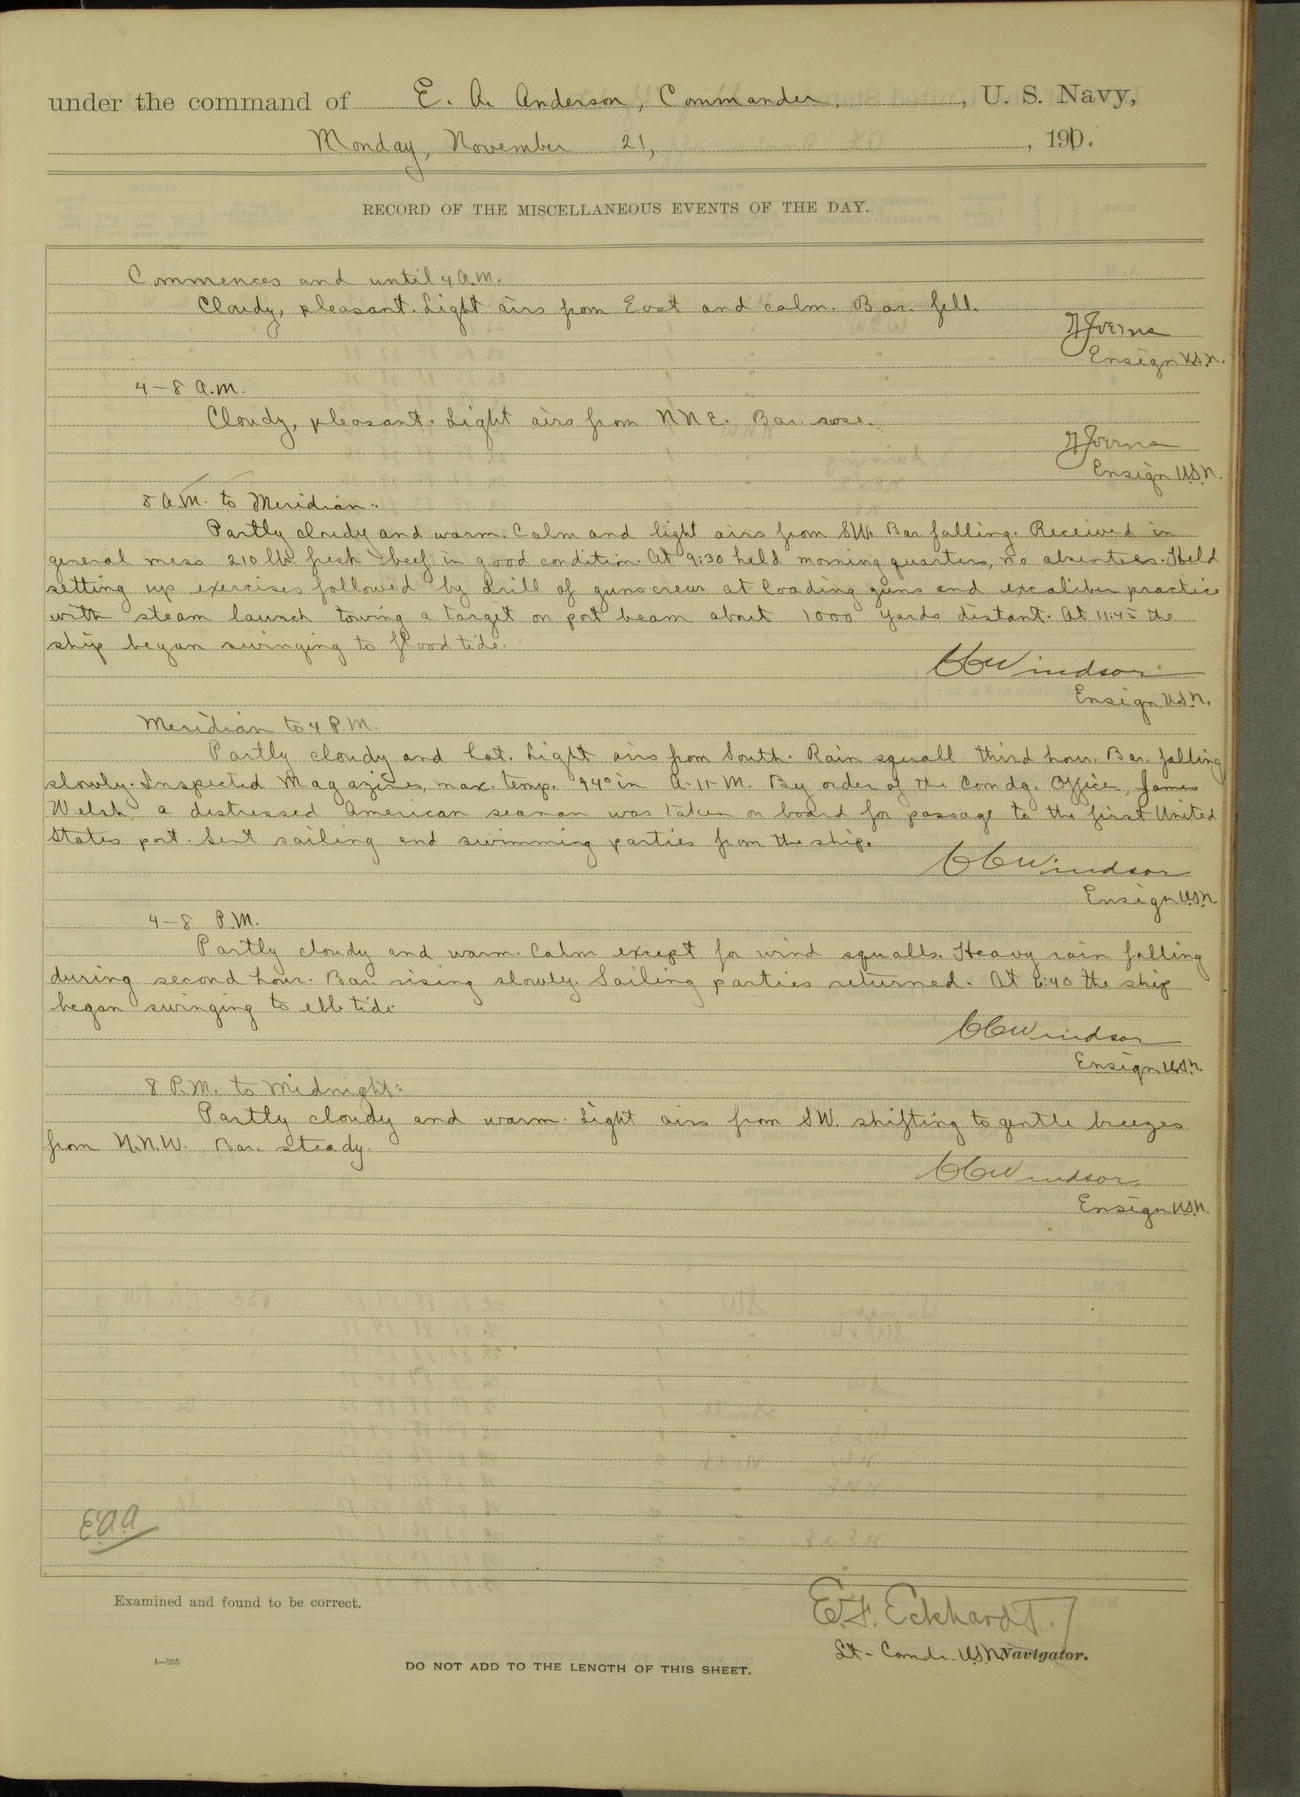 under the command of E. A. Anderson, Commander, U. S. Navy,
Monday, November 21, , 1910.
RECORD OF THE MISCELLANEOUS EVENTS OF THE DAY.
Commences and until 4 A.M.
Cloudy, pleasant. Light airs from East and calm. Bar. fell.
Ensign U.S.N.
4-8 A.M.
Cloudy, pleasant. Light airs from NNE. Bar. rose.
Ensign U.S.N.
8 A.M. to Meridian:
Partly cloudy and warm. Calm and light airs from SW. Bar falling. Received in
general mess 210 lbs. fresh beef in good condition. At 9:30 held morning quarters, no absentees. Held
setting up exercises followed by drill of guns crews at loading guns and excaliber practice
with steam launch towing a target on port beam about 1000 yards distant. At 11:45 the
ship began swinging to flood tide.
CCWindsor
Ensign U.S.N.
Meridian to 4 P.M.
Partly cloudy and hot. Light airs from South. Rain squall third hour. Bar. falling
slowly. Inspected Magazines, max. temp. 94° in A-11-M. By order of the Comdg. Officer, James
Welsh, a distressed American seaman was taken on board for passage to the first United
States port. Sent sailing and swimming parties from the ship.
CCWindsor
Ensign U.S.N.
4-8 P.M.
Partly cloudy and warm. Calm except for wind squalls. Heavy rain falling
during second hour. Bar. rising slowly. Sailing parties returned. At 6:40 the ship
began swinging to ebb tide.
CCWindsor
Ensign U.S.N.
8 P.M. to Midnight:
Partly cloudy and warm. Light airs from SW. shifting to gentle breezes
from N.N.W. Bar. steady.
CCWindsor
Ensign U.S.N.
EAA
Examined and found to be correct.
E. F. Eckhardt.
Lt-Comdr. U.S.N. Navigator.
DO NOT ADD TO THE LENGTH OF THIS SHEET.